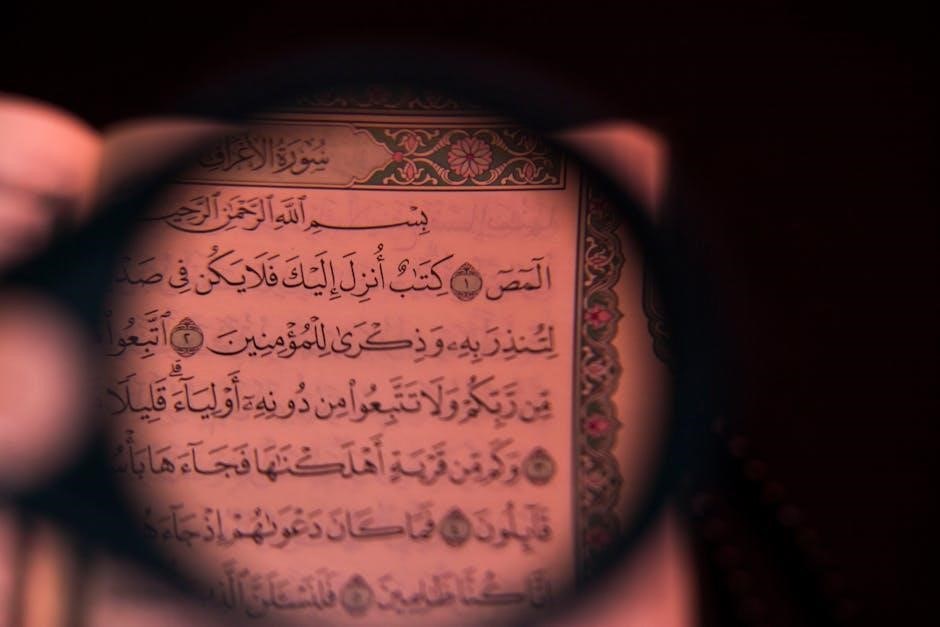 سُورَةُ الأَعْرَافِ
بِسْمِ ٱللَّهِ ٱلرَّحْمَٰنِ ٱلرَّحِي
الٓمٓصٓ ١ كِتَٰبٌ أُنزِلَ إِلَيْكَ فَلَا يَكُن فِى صَدْ
لِتُنذِرَ بِهِۦ وَذِكْرَىٰ لِلْمُؤْمِنِينَ ٢ ٱتَّبِعُوا۟
مِّن رَّبِّكُمْ وَلَا تَتَّبِعُوا۟ مِن دُونِهِۦٓ أَوْلِيَآءَ ۗ قَلِيلًا
٣ وَكَم مِّن قَرْيَةٍ أَهْلَكْنَٰهَا فَجَآءَهَا بَأْسُ
قَآئِلُونَ ٤ فَمَا كَانَ دَعْوَىٰهُمْ إِذْ جَآءَهُ
إِنَّا كُنَّا ظَٰلِمِينَ ٥ فَلَنَسْـَٔلَنَّ ٱلَّذ